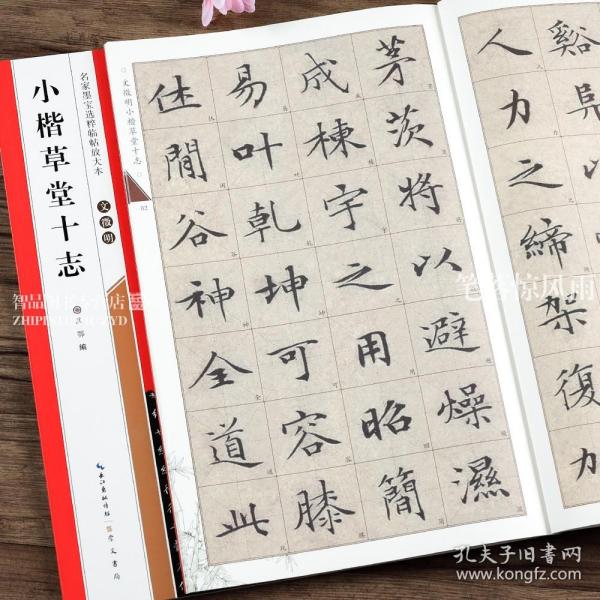 名家墨宝选粹临帖放大本
小楷草堂十志
文徵明
编
长江出版传媒
崇文书局
文徵明小楷草堂十志
02
谿
人力之締架復力
茅茨将以避燥濕
成棟宇之用昭簡
易叶乾坤可容膝
休閒谷神全道此
孔夫子旧书网
www.kongfz.com